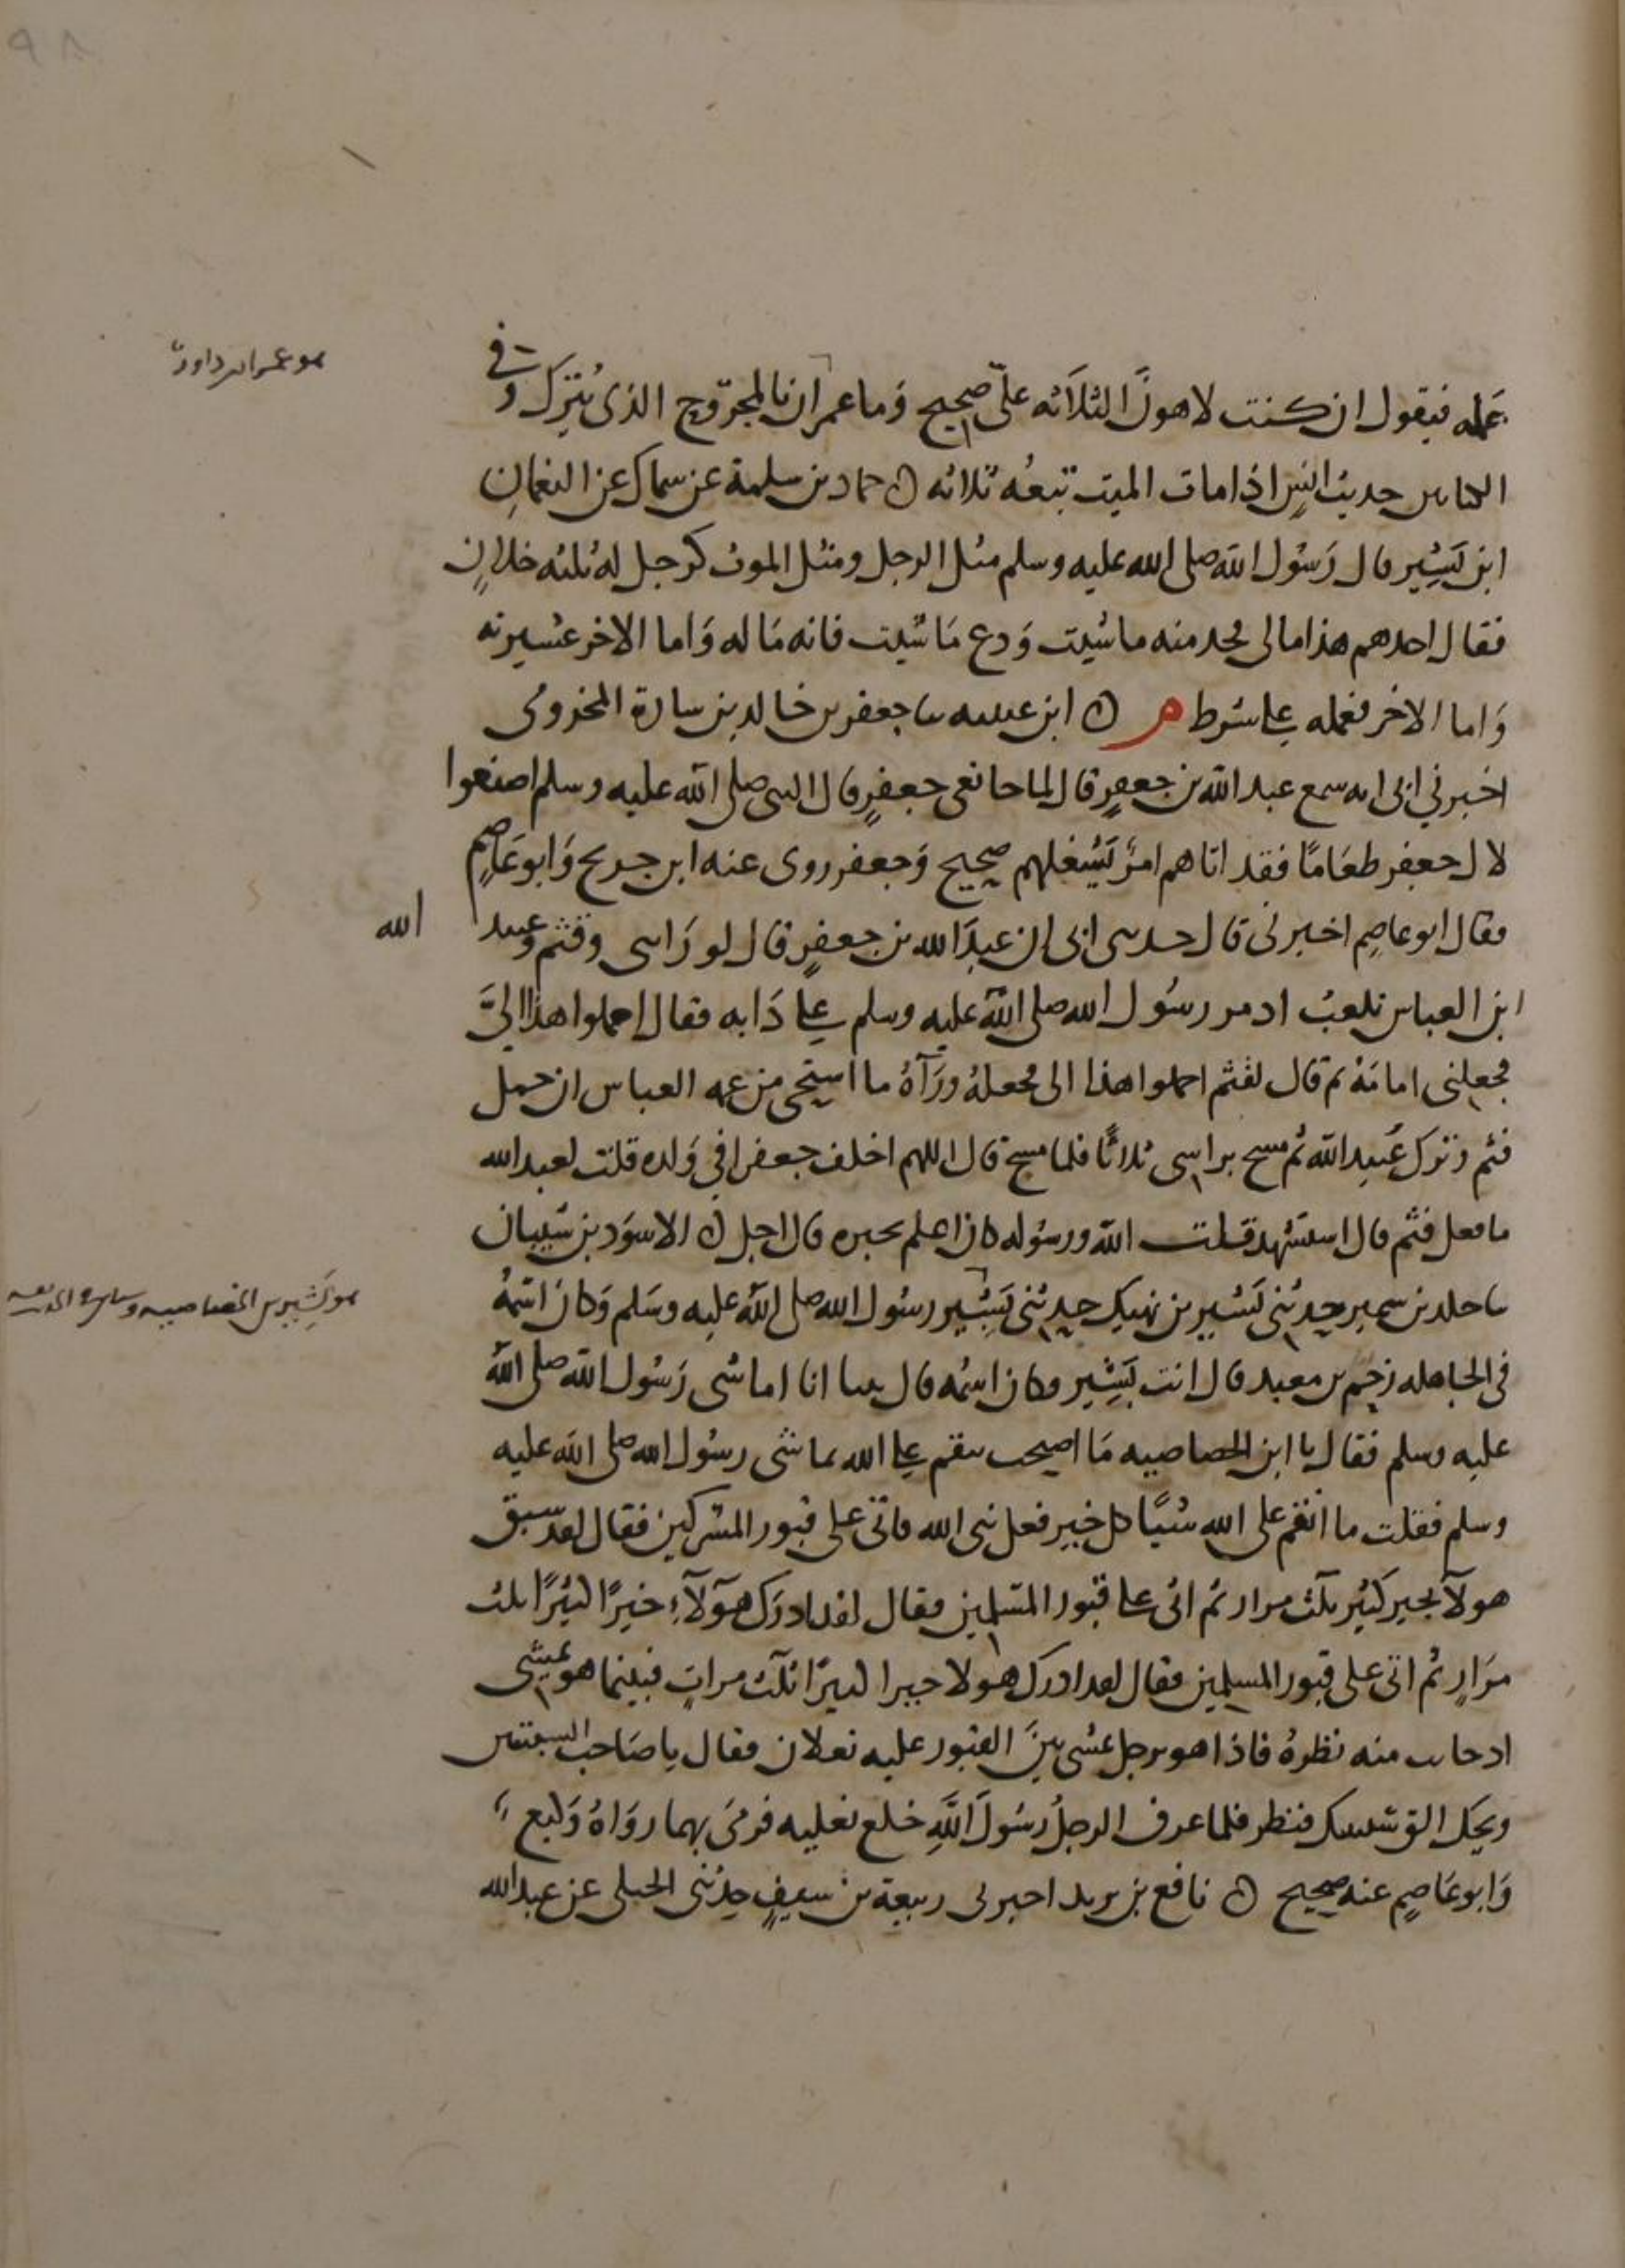 ٩٨
هو عمران بن داود
عمله فيقول ان كنت لاهونَ الثلاَثه علىّ صحيح وَما عمران بالمجرّوح الذى يُترَك وفي
الناس حديث انسٍ اذا مات الميت تبعُه ثلاثه ن حماد بن سلمة عن سماك عن النعمانِ
ابن بَشِير قال رَسُول الله صلى الله عليه وسلم مثل الرجل ومثل الموت كرجل لهُ ثلثه خلانٍ
فقال احدهم هذا مالى فخد منه ما شيت وَدع مَا شيت فانه مَا له وَاما الاخر عشيرته
وَاما الاخر فعمله على شرط م ن ابن عيينه سا جعفر بن خالد بن سارة المخزومى
اخبرني ابى انه سمع عبد الله بن جعفرٍ قال لما جا نعى جعفرٍ قال النبى صلى الله عليه وسلم اصنعوا
لال جعفر طعَامًا فقد اتاهم امرٌ يَشغلهم صحيح وَجعفر روى عنه ابن جريج وَابو عَاصِمٍ
فقال ابو عاصِم اخبرنى قال حدثنى ابى ان عبدَ الله بن جعفرٍ قال لو رَاَيتنى وقثم وعبيد الله
ابن العباس نلعبُ اذ مر رسُول الله صلى الله عليه وسلم على دَابه فقال احملوا هذا اليَّ
فجعلنى امامَهُ ثم قال لقثم احملوا هذا الى فجعلهُ ورَآهُ ما استحى من عمه العباس ان حمل
قثم وَترك عُبيد الله ثم مسح براسى ثلاثًا فلما مسح قال اللهم اخلف جعفرا في وَلده قلت لعبد الله
ما فعل قثم قال استشهد قلت الله ورسُوله كان اعلم بخبره قال اجل ن الاسوَد بن شيبان
سا خلد بن سمير حدثنى بَشير بن نهيك حدثنى بَشِير رسُول الله صلى الله عليه وسَلم وَكان اسمهُ
هو بَشِير بن الخصاصيه
فى الجاهله زحم بن معبد قال انت بَشِير وكان اسمُه قال بينا انا اماشى رَسُول الله صلى الله
عليه وسلم فقال يا ابن الخصاصيه مَا اصبحت تنقم على الله تماشى رسُول الله صلى الله عليه
وسلم فقلت ما انقم على الله شيًا كل خيرٍ فعل بى الله فاتى على قبور المشركين فقال لقد سبق
هولآ بخير كثيرٍ ثلث مرارٍ ثم اتى على قبور المسلمين فقال لقد ادرَك هَولآءِ خيرًا كثيرًا ثلث
مرَارٍ ثم اتى على قبور المسلمين فقال لقد ادرك هولا خيرا كثيرًا ثلث مراتٍ فبينما هو يمشى
اذ حانت منه نظرهُ فاذا هو برجل يمشى بينَ القبور عليه نعلان فقال يا صَاحب السبتتين
ويحك الق سبتيتك فنظر فلما عرف الرجلُ رسُولَ اللهِ خلع نعليه فرمَى بهما روَاهُ وَكيع
وَابو عَاصِمٍ عنه صحيح ن نافع بن يزيد اخبرنى ربيعة بن سيفٍ حدثنى الحبلى عن عبد الله